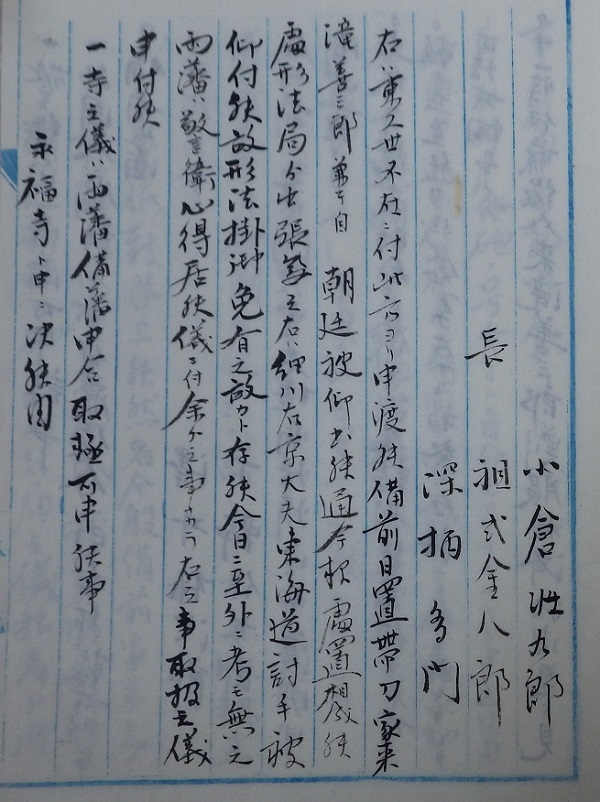 小倉壮九郎
長　祖式金八郎
深栖多門
右ハ東久世不在ニ付此方ヨリ申渡候備前日置帯刀家来
滝善三郎兼而自　朝廷被仰出候通今夜處置相成候
處形法局ゟ出張無之右ハ細川右京大夫東海道討手被
仰付候故形法掛御免有之故カト存候今日ニ至外ニ考モ無之
両藩ハ警衛心得居候儀ニ付余ゟ之事ナカラ右之事取扱之儀
申付候
一寺之儀ハ両藩備藩申合取極可申候事
永福寺ト申ニ决候由